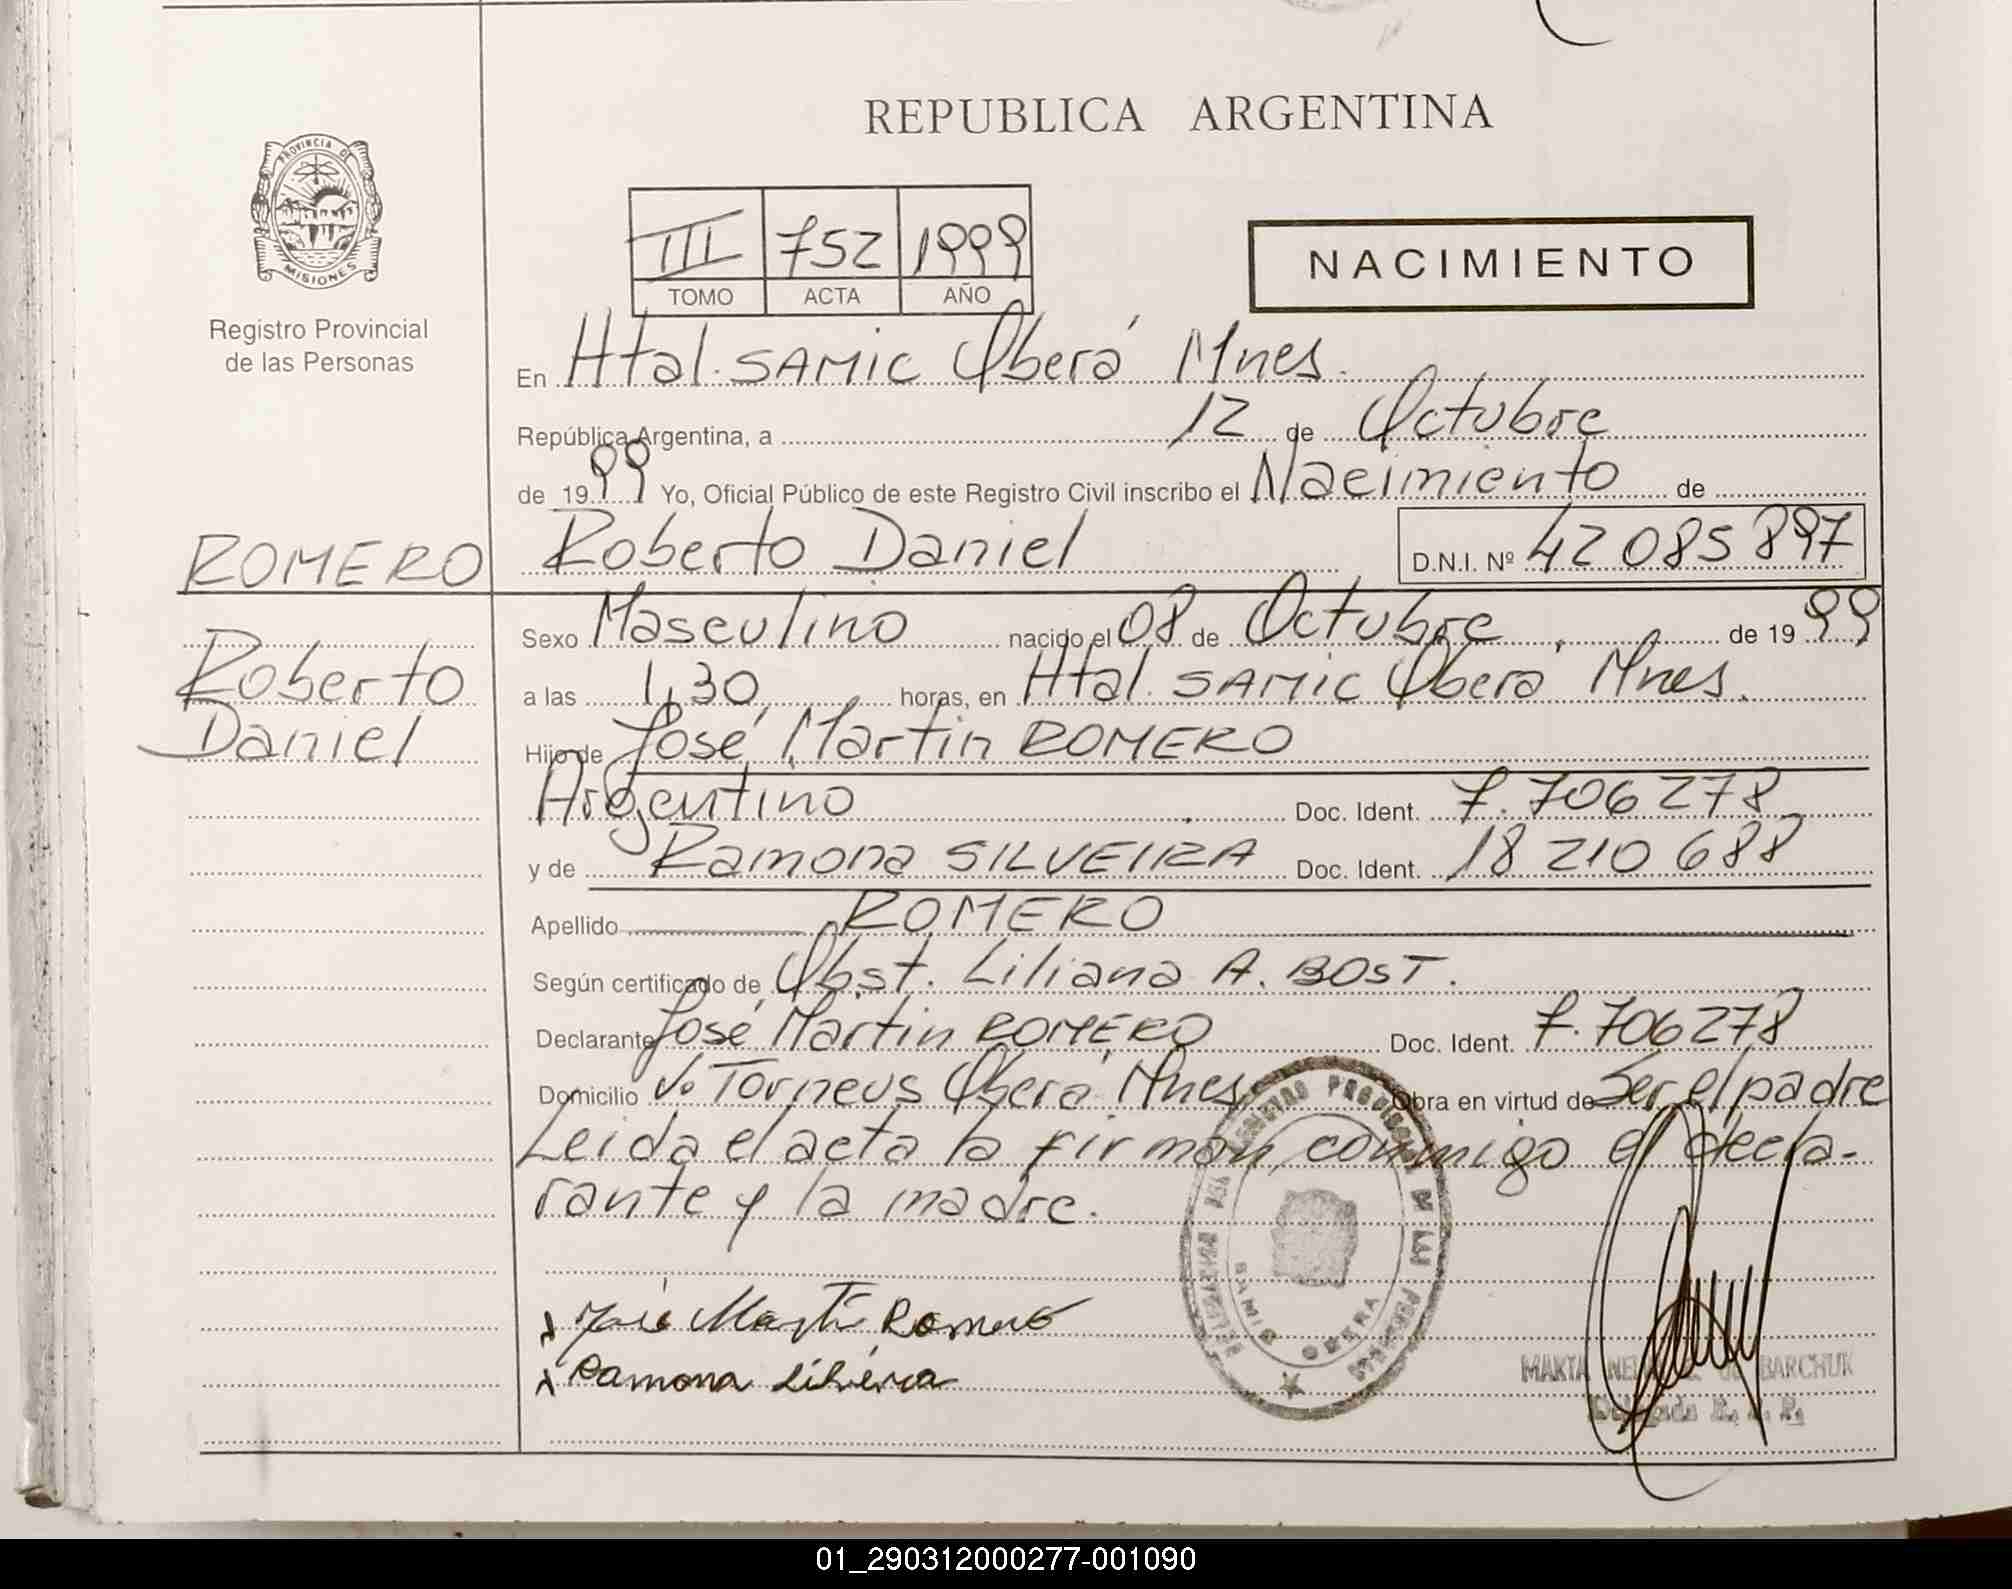 REPUBLICA ARGENTINA
PROVINCIA DE
MISIONES
Registro Provincial
de las Personas
III 752 1999
TOMO ACTA AÑO
NACIMIENTO
En Htal. SAMIC Oberá Mnes.
República Argentina, a 12 de Octubre
de 1999 Yo, Oficial Público de este Registro Civil inscribo el Nacimiento de
ROMERO Roberto Daniel D.N.I. Nº 42 085 897
Sexo Masculino nacido el 08 de Octubre de 1999
Roberto a las 1,30 horas, en Htal. SAMIC Oberá Mnes.
Daniel Hijo de José Martin ROMERO
Argentino Doc. Ident. 7.706278
y de Ramona SILVEIRA Doc. Ident. 18 210 688
Apellido ROMERO
Según certificado de Obst. Liliana A. BOST.
Declarante José Martin ROMERO Doc. Ident. 7.706278
Domicilio Vº Torneus Oberá Mnes Obra en virtud de Ser el padre
Leida el acta la firman conmigo el decla-
rante y la madre.
x José Martin Romero
x Ramona Silveira
OBERA
SAMIC
BARCHUK
01_290312000277-001090